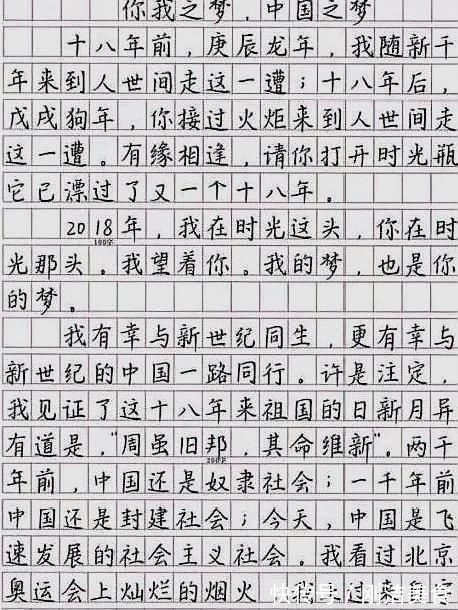 你我之梦，中国之梦
十八年前，庚辰龙年，我随新千
年来到人世间走这一遭；十八年后，
戊戌狗年，你接过火炬来到人世间走
这一遭。有缘相逢，请你打开时光瓶
它已漂过了又一个十八年。
2018年，我在时光这头，你在时
100字
光那头。我望着你。我的梦，也是你
的梦。
我有幸与新世纪同生，更有幸与
新世纪的中国一路同行。许是注定，
我见证了这十八年来祖国的日新月异
有道是，“周虽旧邦，其命维新”。两千
200字
年前，中国还是奴隶社会；一千年前
中国还是封建社会；今天，中国是飞
速发展的社会主义社会。我看过北京
奥运会上灿烂的烟火，我
快传号